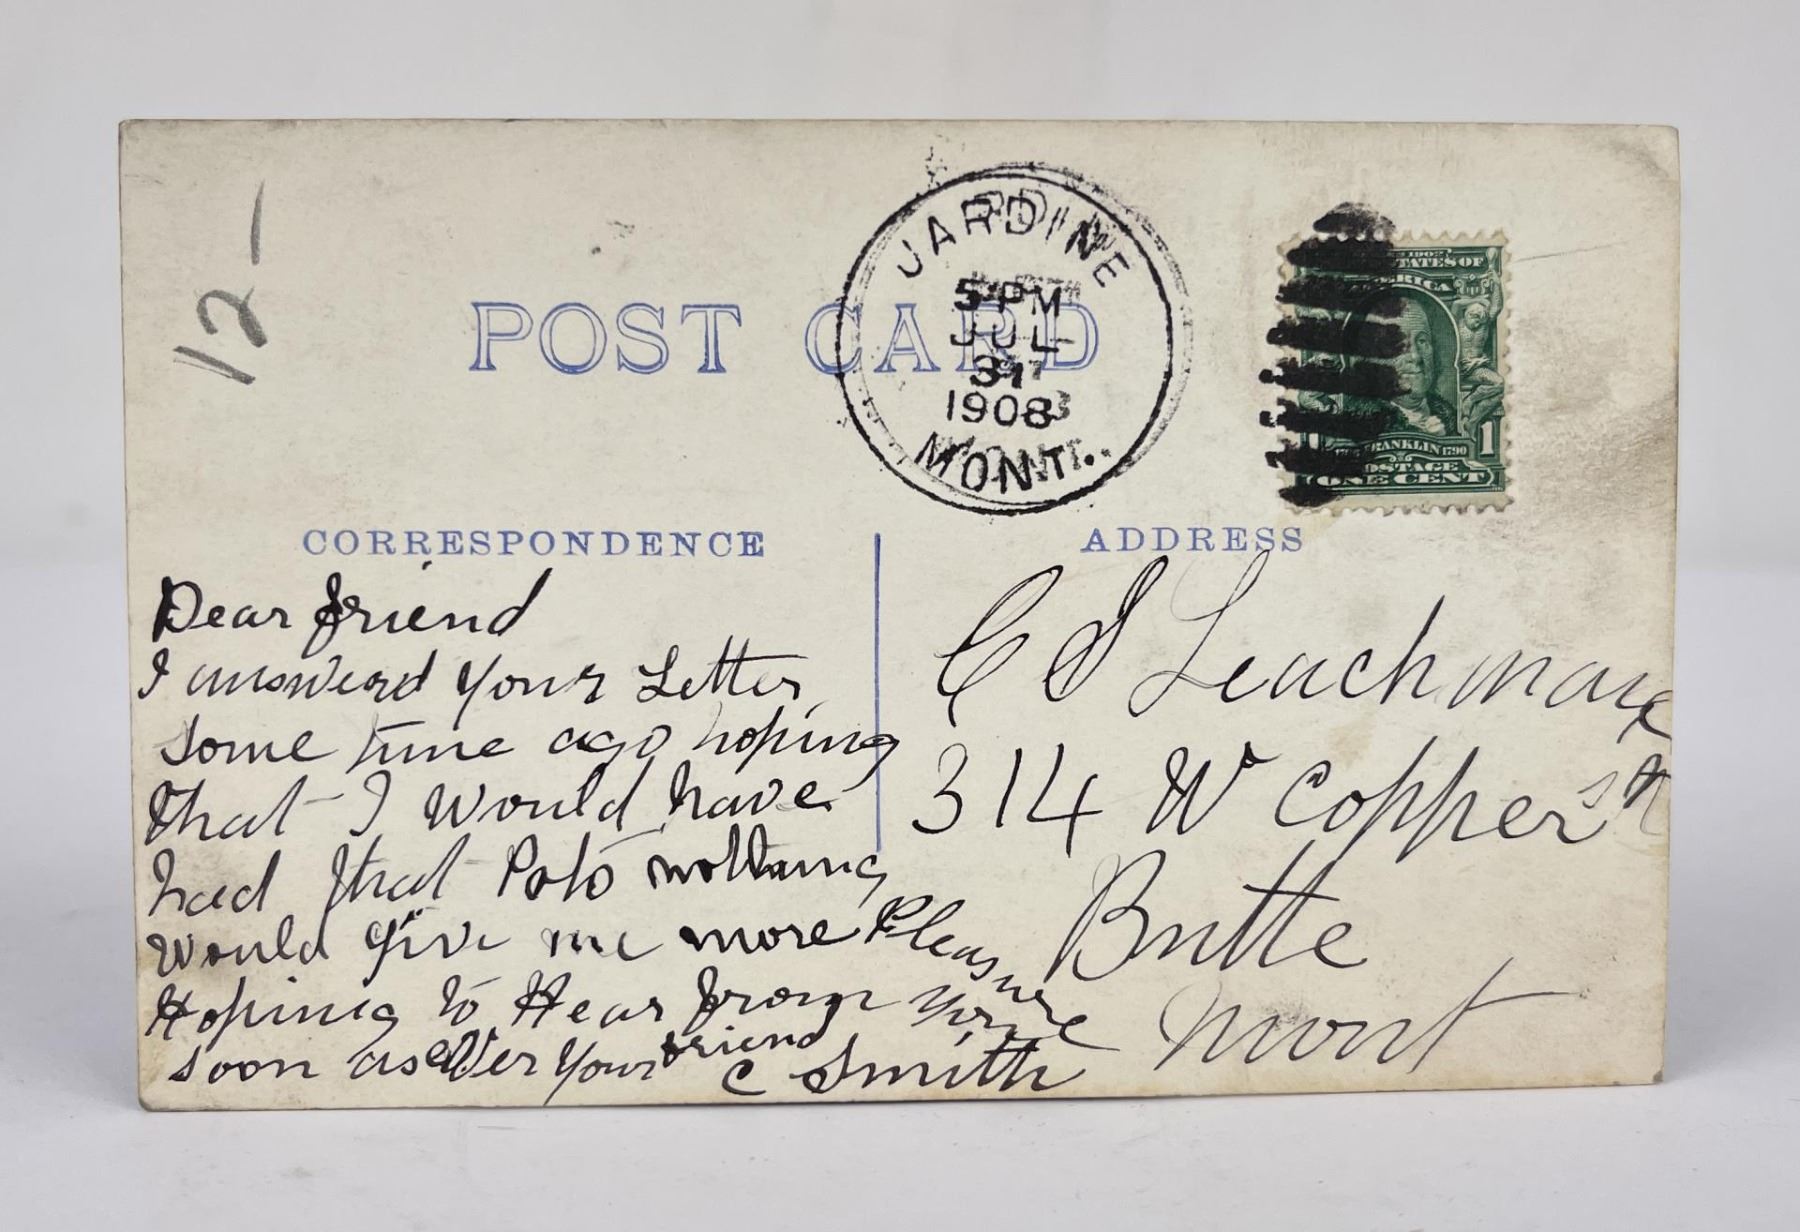 12-
POST CARD
JARDINE
5-PM
JUL
31
1908
MONT.
STATES OF
AMERICA
FRANKLIN 1790
1
POSTAGE
ONE CENT
CORRESPONDENCE
Dear friend
I answerd your Letter
some time ago hoping
that I would have
had that Poto nothing
would give me more Pleasure
Hoping to Hear from you
soon as ever your friend
C Smith
ADDRESS
C S Leachman
314 W Copper St
Butte
Mont